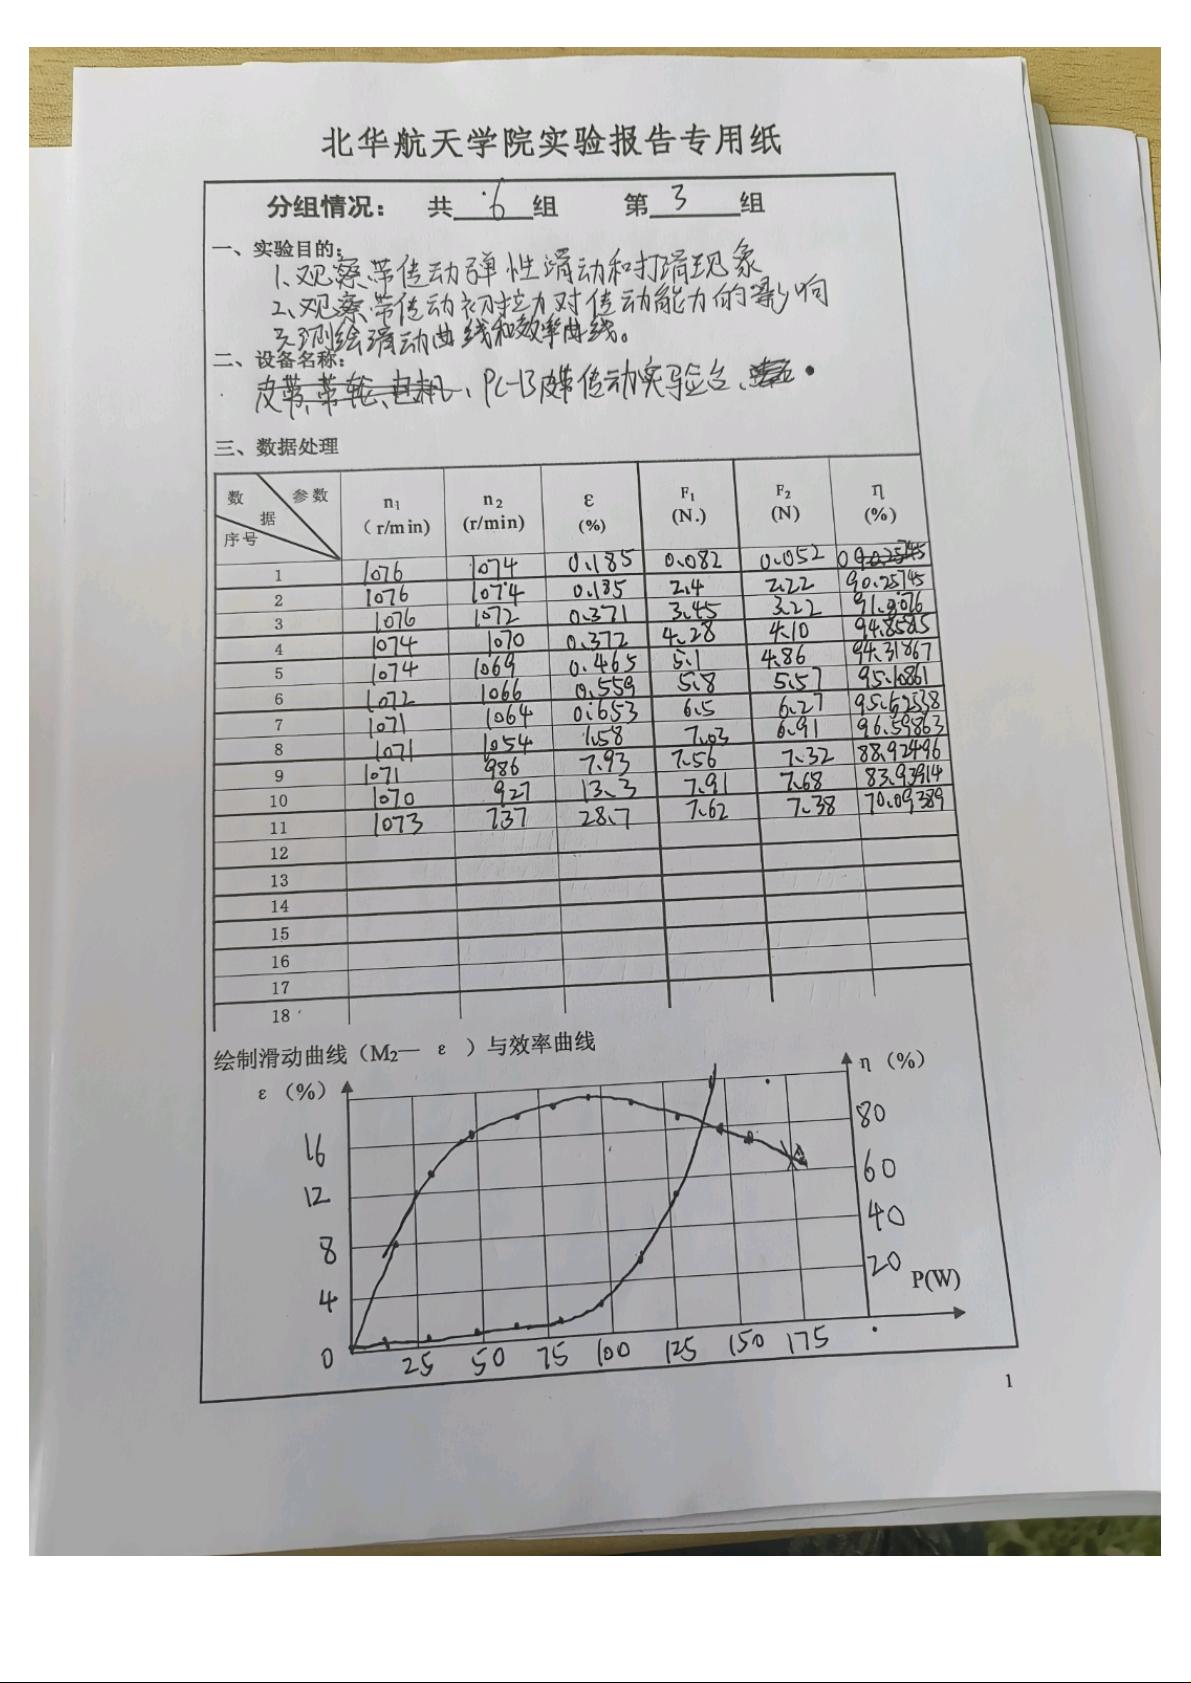 北华航天学院实验报告专用纸
分组情况： 共 6 组 第 3 组
一、实验目的：
1、观察带传动弹性滑动和打滑现象
2、观察带传动初拉力对传动能力的影响
3、测绘滑动曲线和效率曲线。
二、设备名称：
皮带、带轮、电机、PC-B皮带传动实验台、
三、数据处理
数据 参数 序号 n1 (r/min) n2 (r/min) ε (%) F1 (N.) F2 (N) η (%)
1 1076 1074 0.185 0.082 0.052 0
2 1076 1074 0.185 2.4 2.22 90.25745
3 1076 1072 0.371 3.45 3.22
4 1074 1070 0.372 4.28 4.10 94.8585
5 1074 1069 0.465 5.1 4.86 94.31867
6 1072 1066 0.559 5.8 5.57 95.10861
7 1071 1064 0.653 6.5 6.27 95.62538
8 1071 1054 1.58 7.03 6.91 96.59863
9 1071 986 7.93 7.56 7.32 88.92496
10 1070 927 13.3 7.91 7.68 83.93914
11 1073 737 28.7 7.62 7.38 70.09389
12
13
14
15
16
17
18
绘制滑动曲线（M2— ε ）与效率曲线
ε（%） η（%）
16 80
12 60
8 40
4 20
P(W)
0 25 50 75 100 125 150 175
1